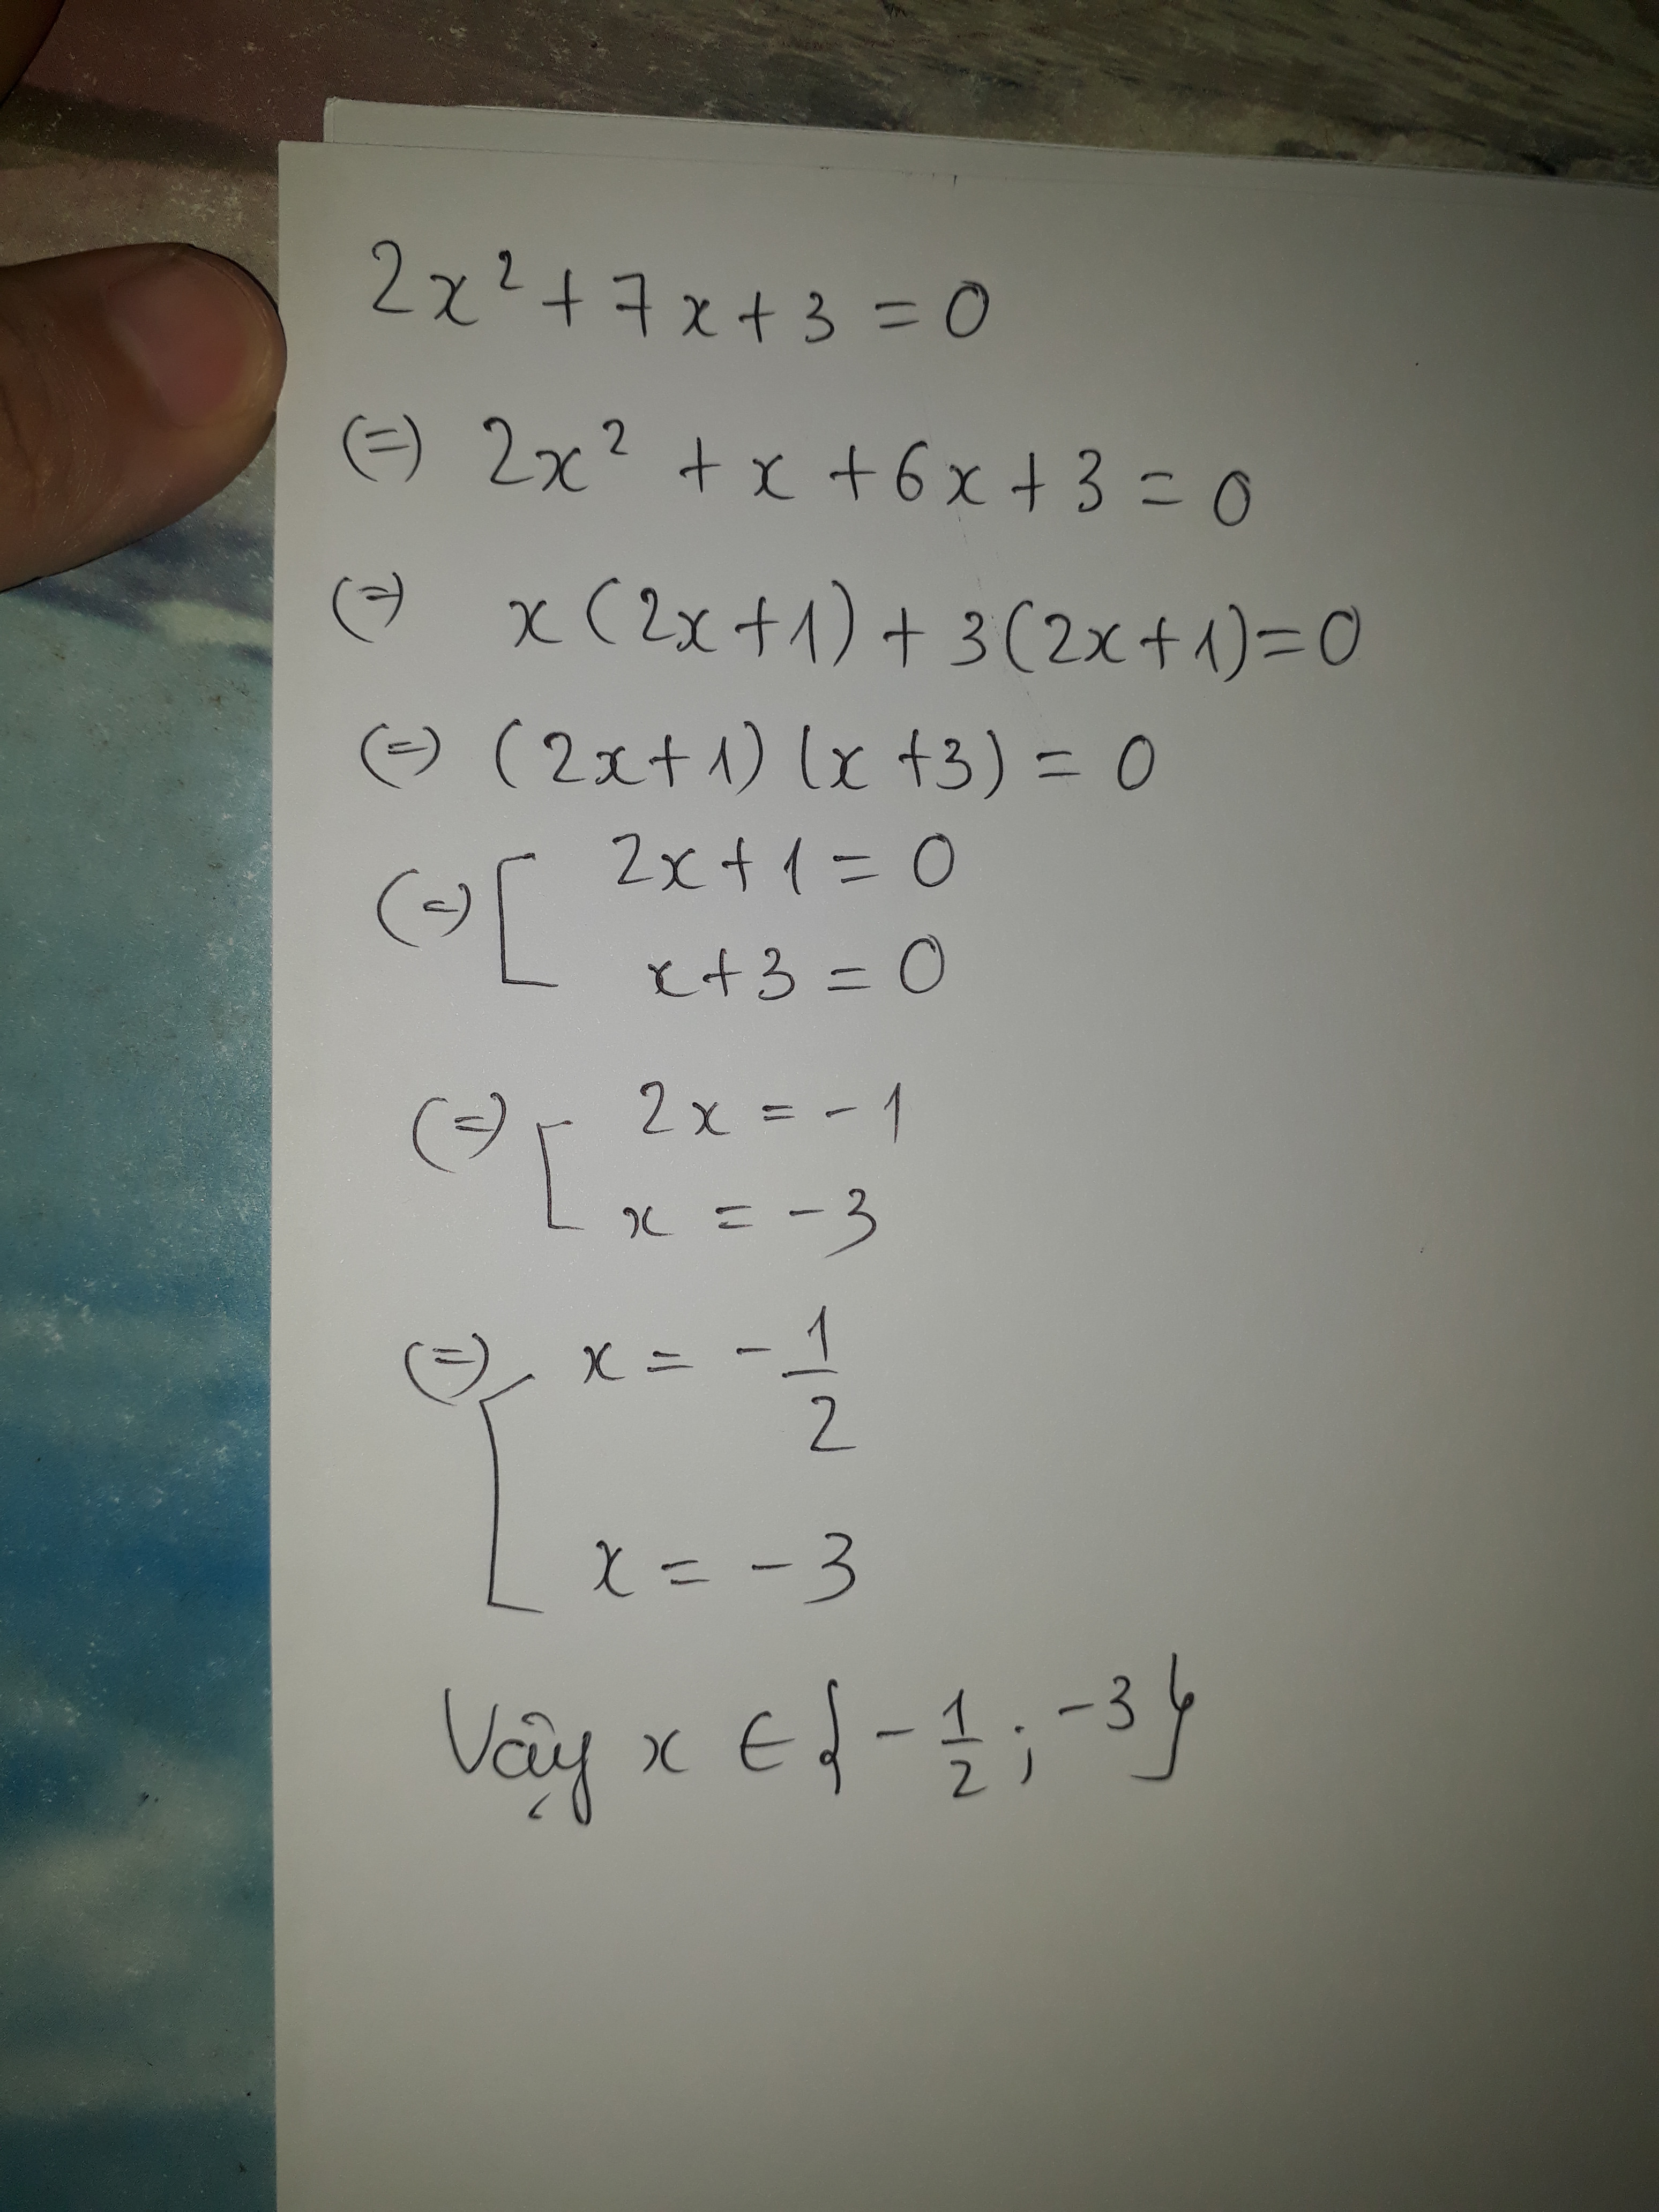 2x² + 7x + 3 = 0
(=) 2x² + x + 6x + 3 = 0
(=) x(2x+1) + 3(2x+1) = 0
(=) (2x+1)(x+3) = 0
(=) [ 2x+1 = 0
x+3 = 0
(=) [ 2x = -1
x = -3
(=) [ x = -1/2
x = -3
Vậy x ∈ {-1/2; -3}